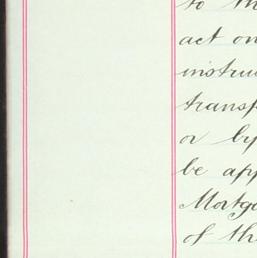 to th
act on
instru
transf
or by
be app
Mortga
of th